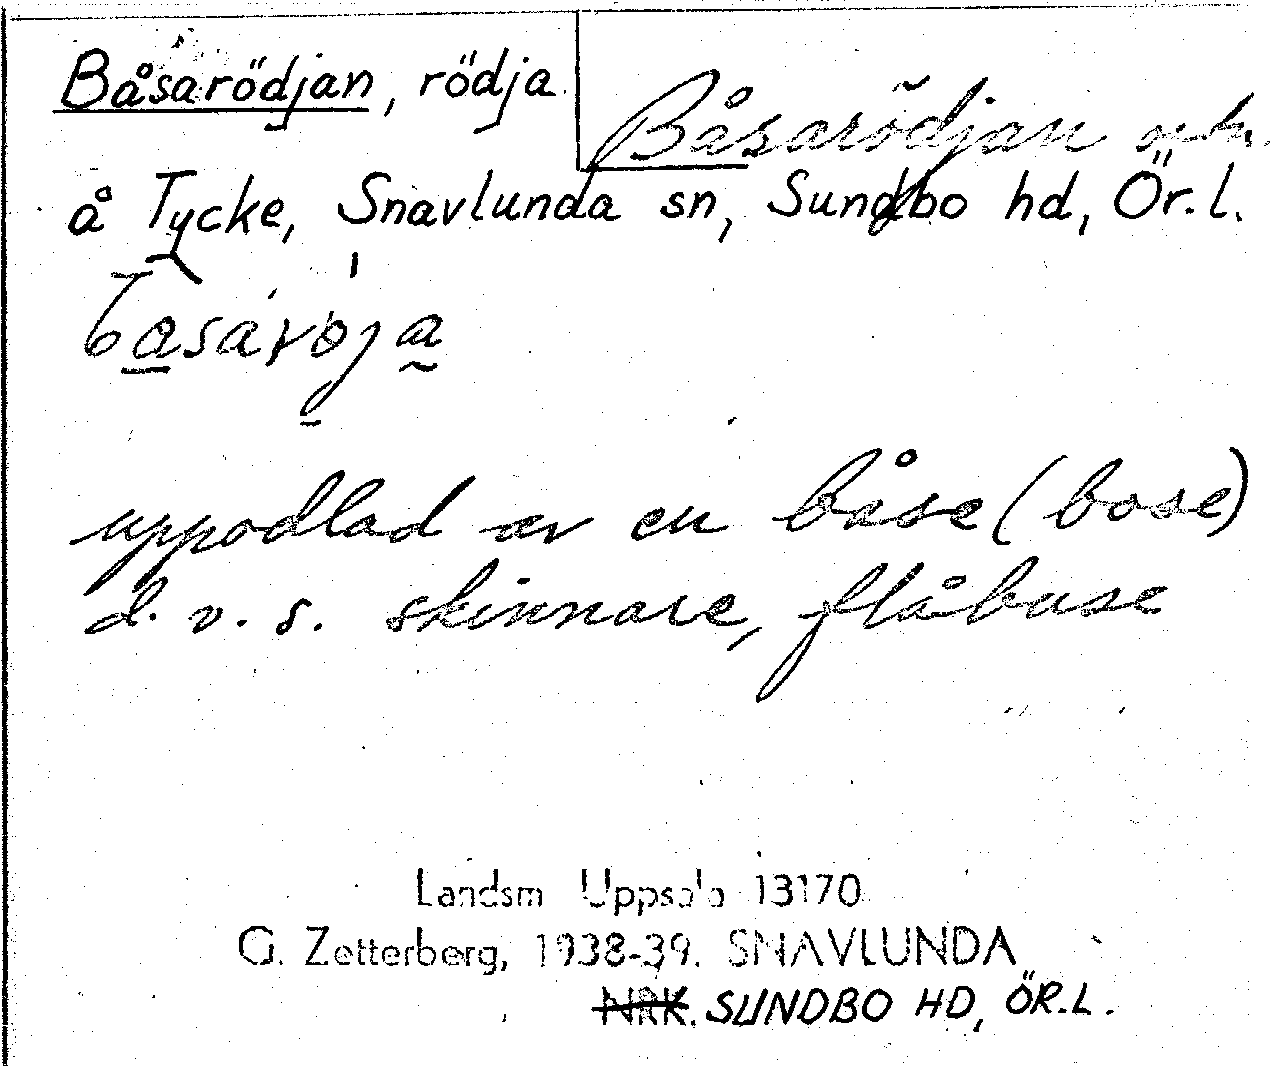 Båsarödjan, rödja
Båsarödjan
å Tycke, Snavlunda sn, Sundbo hd, Ör.l.
uppodlad av en båse (bose)
d.v.s. skinnare, flåbuse
Landsm Uppsala 13170
G. Zetterberg, 1938-39. SNAVLUNDA
NRK. SUNDBO HD, ÖR.L.